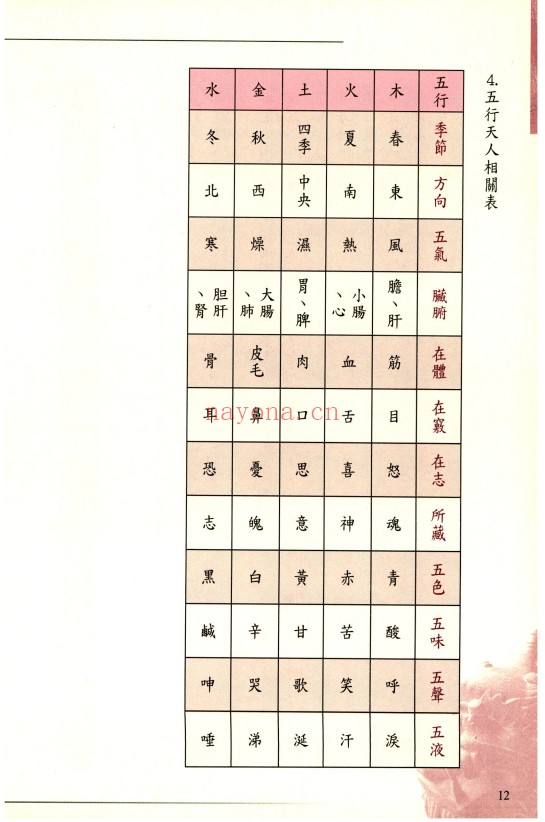 4.五行天人相關表
五行 木 火 土 金 水
季節 春 夏 四季 秋 冬
方向 東 南 中央 西 北
五氣 風 熱 濕 燥 寒
臟腑 膽、肝 小腸、心 胃、脾 大腸、肺 胆肝、腎
在體 筋 血 肉 皮毛 骨
在竅 目 舌 口 鼻 耳
在志 怒 喜 思 憂 恐
所藏 魂 神 意 魄 志
五色 青 赤 黃 白 黑
五味 酸 苦 甘 辛 鹹
五聲 呼 笑 歌 哭 呻
五液 淚 汗 涎 涕 唾
nayona.cn
12